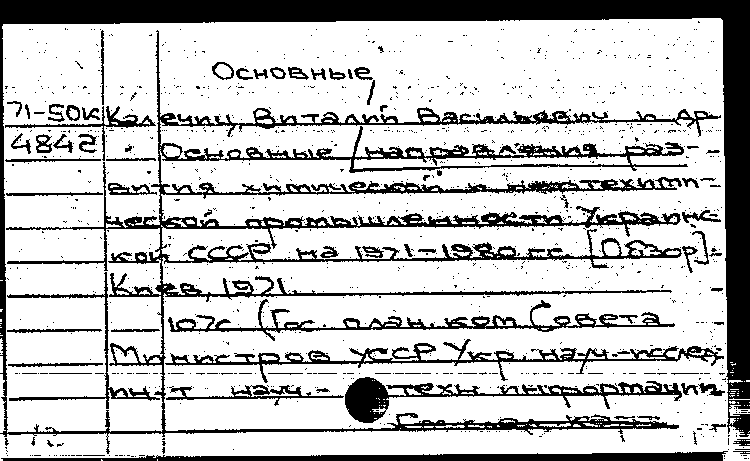 Основные
71-50К Каленич, Виталий Васильевич и др
4842 Основные / направления раз-
вития химической и нефтехими-
ческой промышленности Украинс-
кой СССР на 1971-1980 гг. [Обзор].
Киев, 1971.
107с (Гос. план. ком Совета
Министров УССР Укр. науч.-исслед
ин-т науч.- техн информации